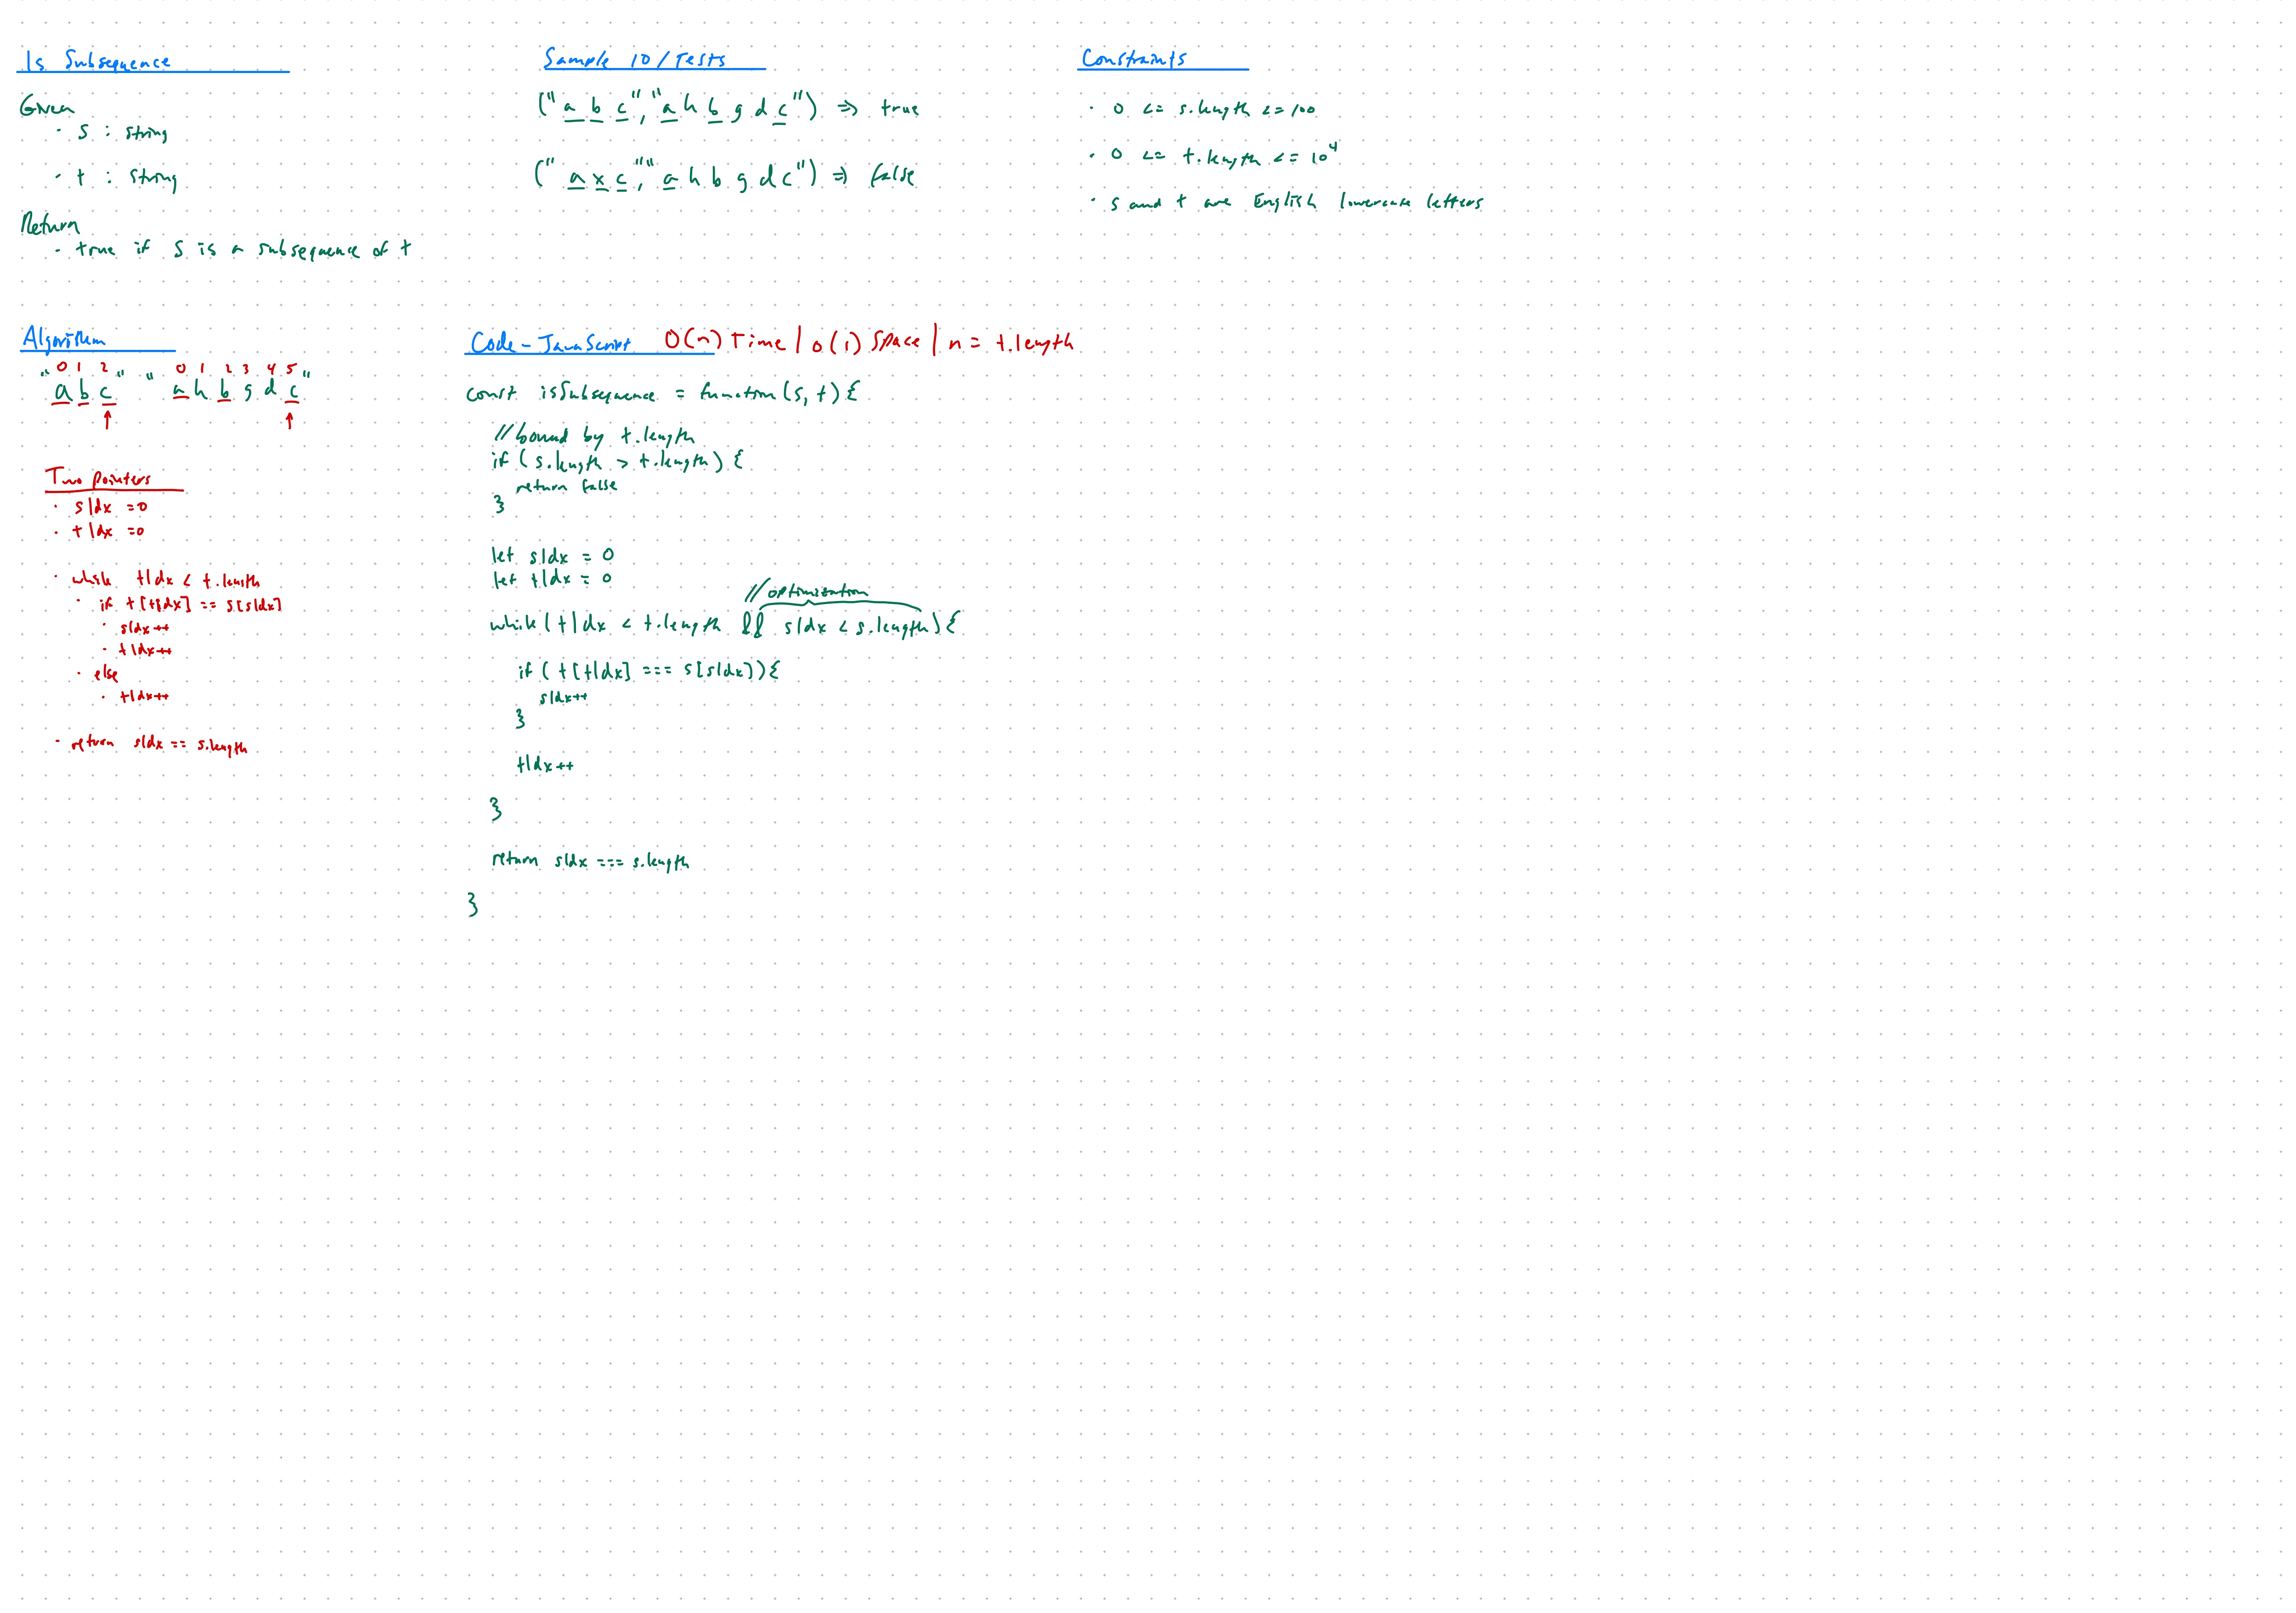 Is Subsequence
Given
· s : string
· t : string
Return
· true if s is a subsequence of t
Sample IO/Tests
("abc","ahbgdc") => true
("axc","ahbgdc") => false
Constraints
· 0 <= s.length <= 100
· 0 <= t.length <= 10⁴
· s and t are English lowercase letters
Algorithm
0 1 2 0 1 2 3 4 5
"abc" "ahbgdc"
↑ ↑
Two pointers
· sIdx = 0
· tIdx = 0
· while tIdx < t.length
· if t[tIdx] == s[sIdx]
· sIdx++
· tIdx++
· else
· tIdx++
· return sIdx == s.length
Code - JavaScript O(n) Time | O(1) Space | n = t.length
const isSubsequence = function(s, t){
//bound by t.length
if (s.length > t.length) {
return false
}
let sIdx = 0
let tIdx = 0
//optimization
while(tIdx < t.length && sIdx < s.length){
if (t[tIdx] === s[sIdx]){
sIdx++
}
tIdx++
}
return sIdx === s.length
}